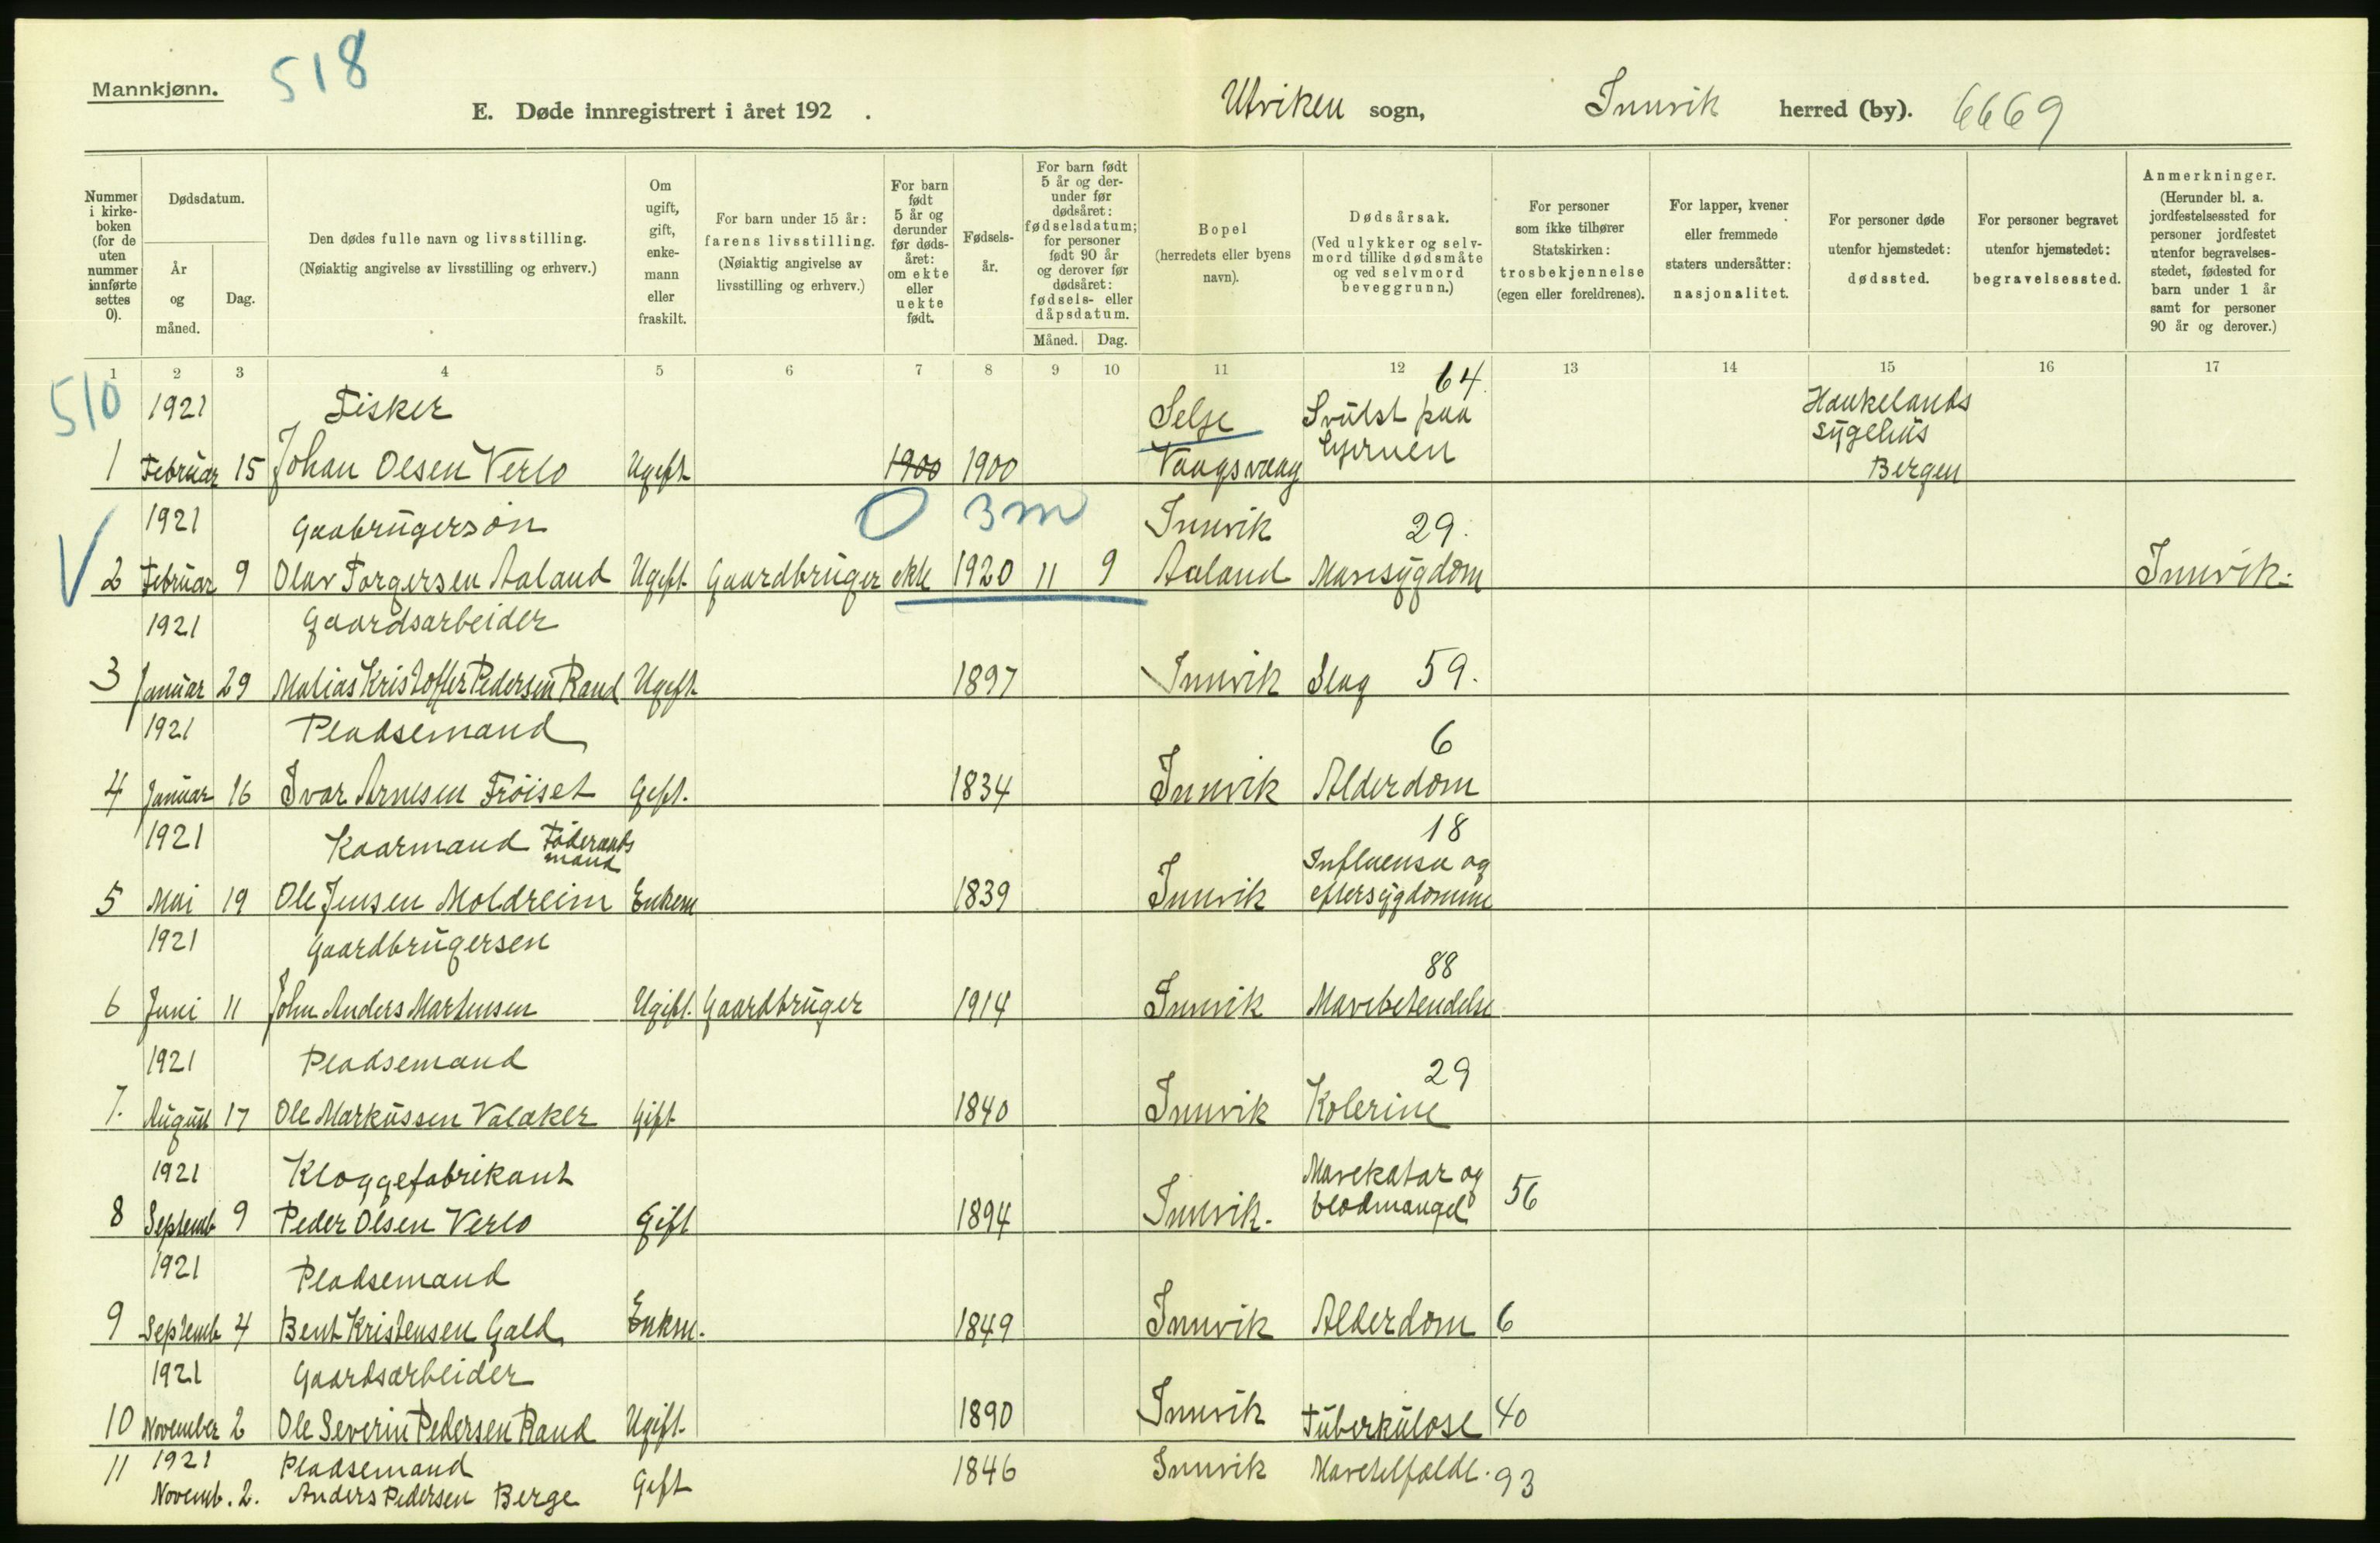 Mannkjønn.
518
E. Døde innregistrert i året 192 .
Utviken sogn, Innvik herred (by). 6669
Nummer i kirkeboken (for de uten nummer innførte settes 0).
Dødsdatum.
År og måned.
Dag.
Den dødes fulle navn og livsstilling.
(Nøiaktig angivelse av livsstilling og erhverv.)
Om ugift, gift, enkemann eller fraskilt.
For barn under 15 år: farens livsstilling.
(Nøiaktig angivelse av livsstilling og erhverv.)
For barn født 5 år og derunder før dødsåret: om ekte eller uekte født.
Fødselsår.
For barn født 5 år og derunder før dødsåret: fødselsdatum; for personer født 90 år og derover før dødsåret: fødsels- eller dåpsdatum.
Måned. Dag.
Bopel
(herredets eller byens navn).
Dødsårsak.
(Ved ulykker og selvmord tillike dødsmåte og ved selvmord beveggrunn.)
For personer som ikke tilhører Statskirken: trosbekjennelse (egen eller foreldrenes).
For lapper, kvener eller fremmede staters undersåtter: nasjonalitet.
For personer døde utenfor hjemstedet: dødssted.
For personer begravet utenfor hjemstedet: begravelsessted.
Anmerkninger.
(Herunder bl. a. jordfestelsessted for personer jordfestet utenfor begravelsesstedet, fødested for barn under 1 år samt for personer 90 år og derover.)
1 2 3 4 5 6 7 8 9 10 11 12 13 14 15 16 17
510 1921 Fisker Selje Svulst paa 64. Haukelands
sygehus
1 Februar 15 Johan Olsen Verlo Ugift 1900 1900 Vaagsvaag hjernen Bergen
1921 Gaabrugersøn 0 3m Innvik 29.
V 2 Februar 9 Olav Torgersen Aaland Ugift Gaardbruger ekte 1920 11 9 Aaland Mavesygdom Innvik.
1921 Gaardsarbeider
3 Januar 29 Matias Kristoffer Pedersen Rand Ugift 1897 Innvik Slag 59.
1921 Pladsemand 6
4 Januar 16 Ivar Arnesen Frøiset Gift. 1834 Innvik Alderdom
1921 Kaarmand Føderaads mand 18
Influensa og
5 Mai 19 Ole Jensen Moldreim Enkem 1839 Innvik eftersygdomme
1921 Gaardbrugersen 88
6 Juni 11 John Anders Martensen Ugift. Gaardbruger 1914 Innvik Mavebetendelse
1921 Pladsemand 29
7. August 17 Ole Markussen Valaker Gift 1840 Innvik Kolerine
1921 Kloggefabrikant Mavekatar og
8 Septemb 9 Peder Olsen Verlo Gift 1894 Innvik. blodmangel 56
1921 Pladsemand
9 Septemb 4 Bent Kristensen Gald Enkm. 1849 Innvik Alderdom 6
1921 Gaardsarbeider
10 November 2 Ole Severin Pedersen Rand Ugift. 1890 Innvik Tuberkulose 40
11 1921 Pladsemand 1846 Innvik 93
Novemb. 2. Anders Pedersen Berge Gift